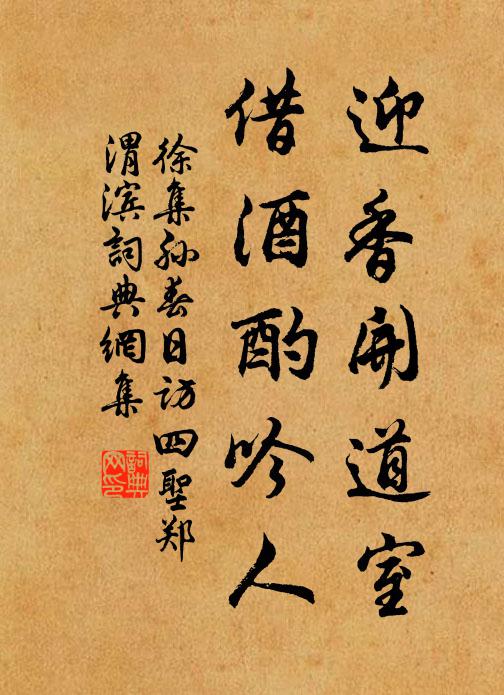 迎香開道室
借酒酌吟人
徐集孙春日访四聖郑
渭滨詞典網集
詞典网印